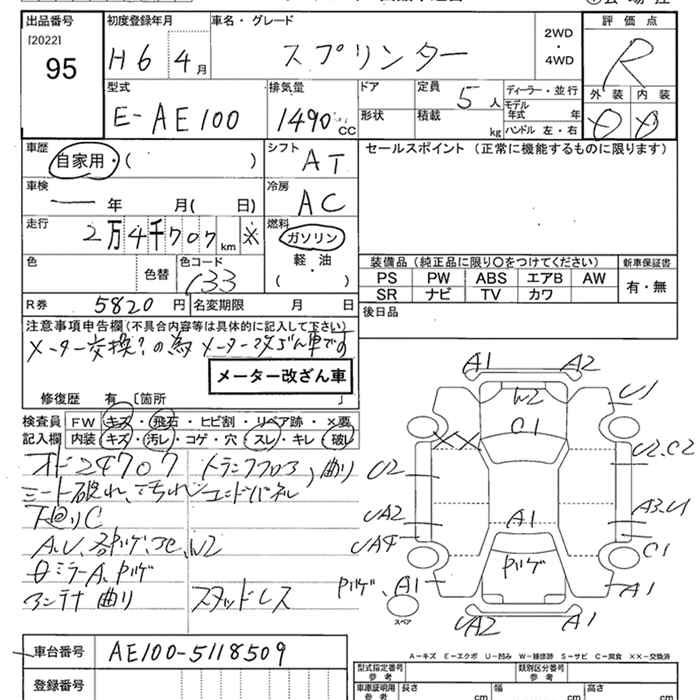 出品番号
[2022]
95
初度登録年月
H6 4月
車名・グレード
スプリンター
2WD
・
4WD
評価点
R
外装 内装
型式
E-AE100
排気量
1490cc
ドア
形状
定員
5人
積載
kg
ディーラー・並行
モデル年式 年
ハンドル 左・右
車歴
自家用・( )
シフト
AT
車検
— 年 月( 日)
冷房
AC
走行
2万4千707km ※
燃料
ガソリン
軽・油
( ・ )
色
色替
色コード
133
R券 5820円
名変期限 月 日
セールスポイント (正常に機能するものに限ります)
装備品(純正品に限り○をつけてください)
PS PW ABS エアB AW
SR ナビ TV カワ
新車保証書
有・無
後日品
注意事項申告欄(不具合内容等は具体的に記入して下さい)
メーター交換?の為 メーター改ざん車です
メーター改ざん車
修復歴 有 〔箇所
検査員記入欄
FW キズ・飛石・ヒビ割・リペア跡・×要
内装 キズ・汚れ・コゲ・穴・スレ・キレ・破レ
オド24707 トランクフロア曲り
シート破れ、汚れ エンドパネル
下回りC
A、U、各ヤリゲ、コセ、W2
ミラーA、ヤリゲ
アンテナ曲り スタッドレス
A1 A2
W2
C1
U1
U2
U2.C2
UA2
A1
A3.U1
UA4
C1
ヤリゲ
ヤリゲ、A1
A1
スペア
UA2
A1
A-キズ E-エクボ U-凹み W-補修跡 S-サビ C-腐食 XX-交換済
車台番号
AE100-5118509
登録番号
型式指定番号
参考
類別区分番号
参考
車庫証明用
参考
長さ cm
幅 cm
高さ cm